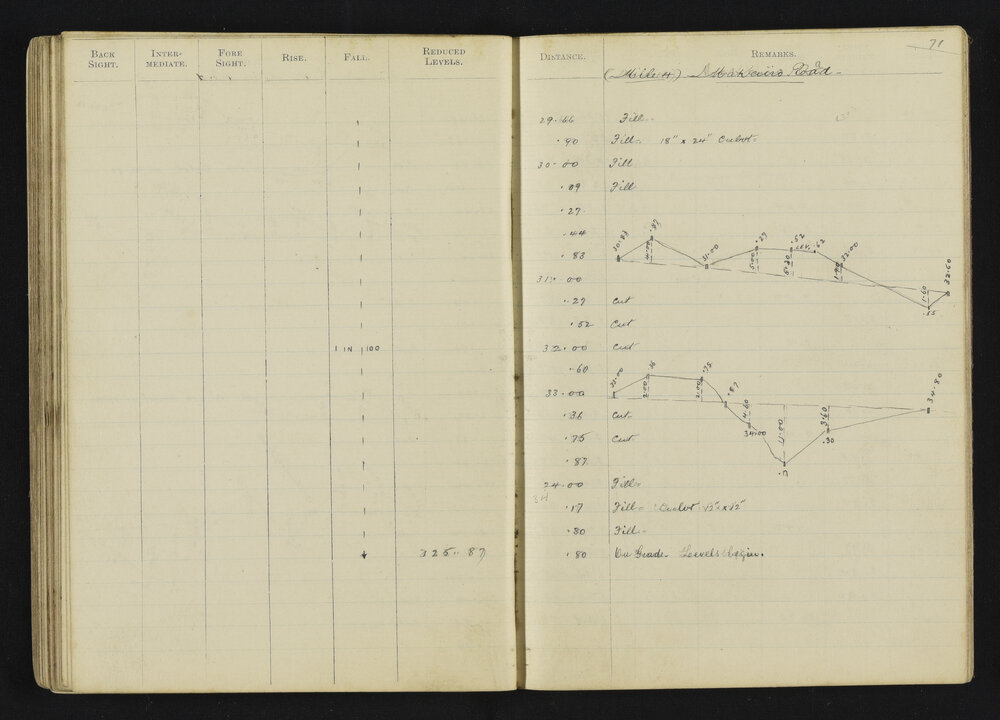 BACK SIGHT. INTER-MEDIATE. FORE SIGHT. RISE. FALL. REDUCED LEVELS.
1 IN 100
325.87
71
DISTANCE. REMARKS.
(Mile 4) Road
29.66 Fill
.90 Fill 18" x 24" Culvt
30.00 Fill
.09 Fill
.27
.44
.83
31.00
.27 Cut
.52 Cut
32.00 Cut
.60
33.00
.36 Cut
.75 Cut
.87
24.00 Fill
34
.17 Fill Culvt 12" x 12"
.80 Fill
.80 On Grade. Levels begin.
30.83 .87 31.00 .27 .52 LEV. .62 32.00 32.60
4.00 5.00 5.30 1.90 1.60
.55
33.00 .36 .75 .87 34.80
2.00 2.00 4.60 11.00 3.60
34.00 .30